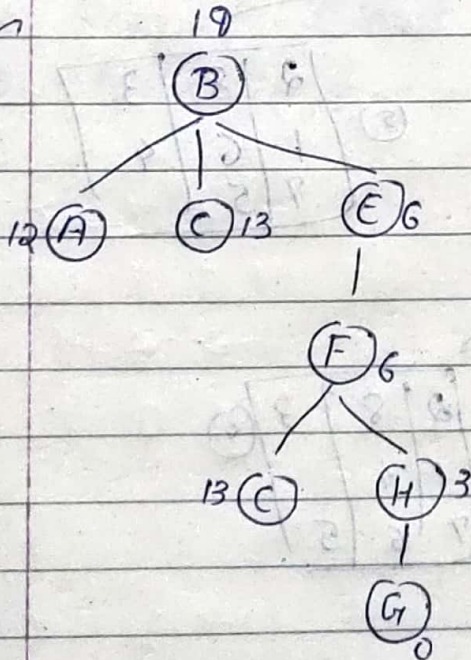 18
B
12 A C 13 E 6
F 6
13 C H 3
G 0